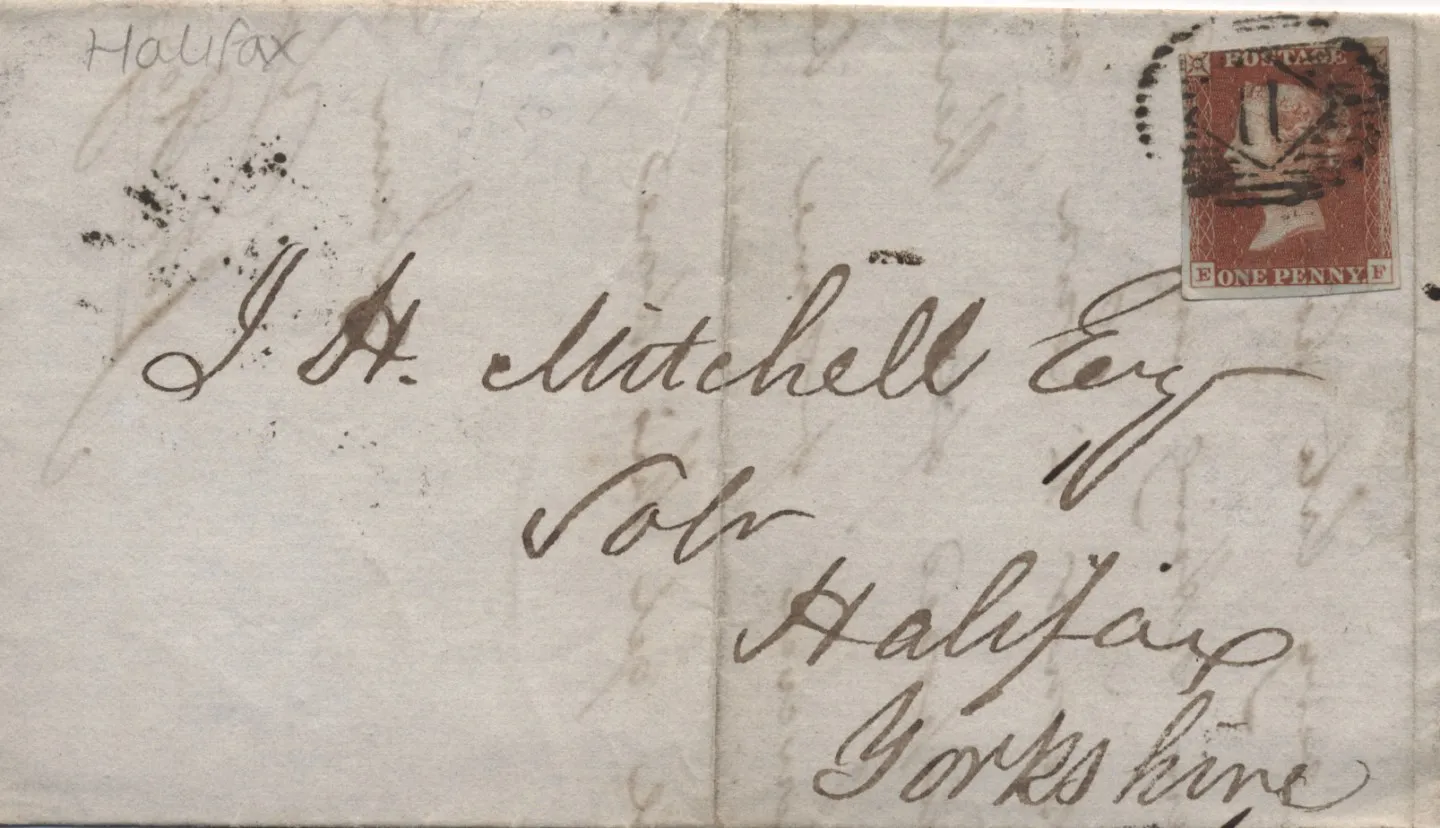 Halifax
POSTAGE
11
E ONE PENNY. F
J. H. Mitchell Esq
Solr
Halifax
Yorkshire